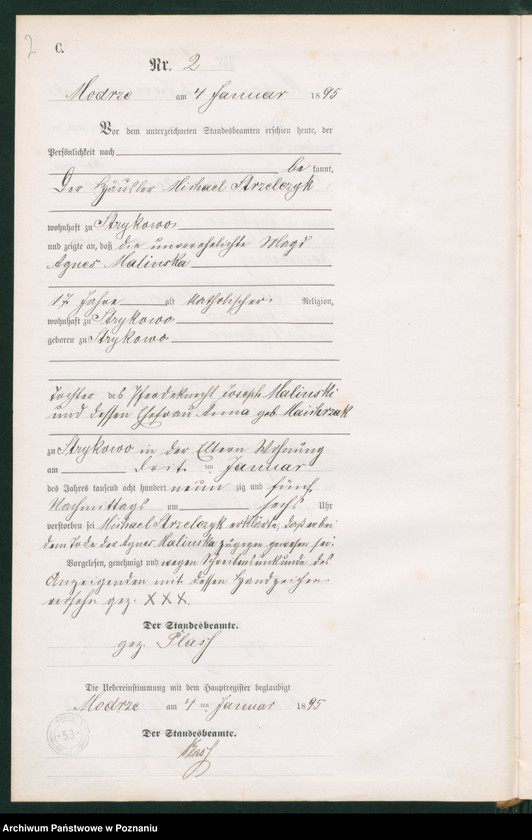 2
C.
Nr. 2
Modrze am 4 Januar 1895
Vor dem unterzeichneten Standesbeamten erschien heute, der
Persönlichkeit nach
be kannt,
Der Häusler Michael Strzelczyk
wohnhaft zu Strykowo
und zeigte an, daß die unverehelichte Magd
Agnes Malinska
17 Jahre alt katholischer Religion,
wohnhaft zu Strykowo
geboren zu Strykowo
Tochter des Pferdeknecht Joseph Malinski
und dessen Ehefrau Anna geb.
zu Strykowo in der Eltern Wohnung
am drit ten Januar
des Jahres tausend acht hundert neun zig und fünf
Nachmittags um sechs Uhr
verstorben sei Michael Strzelczyk erklärte, daß er bei
dem Tode der Agnes Malinska zugegen gewesen sei.
Vorgelesen, genehmigt und wegen Schreibensunkunde des
Anzeigenden mit dessen Handzeichen
versehn gez. XXX.
Der Standesbeamte.
gez.
Die Uebereinstimmung mit dem Hauptregister beglaubigt
Modrze am 4 ten Januar 1895
Der Standesbeamte.
53
Archiwum Państwowe w Poznaniu